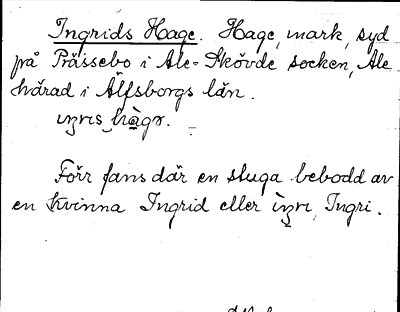 Ingrids Hage. Hage, mark, syd
på Prässebo i Ale-Skövde socken, Ale
härad i Älfsborgs län.
ıŋrıs hàgə.
Förr fans där en stuga bebodd av
en kvinna Ingrid eller ìŋrı, Ingri.